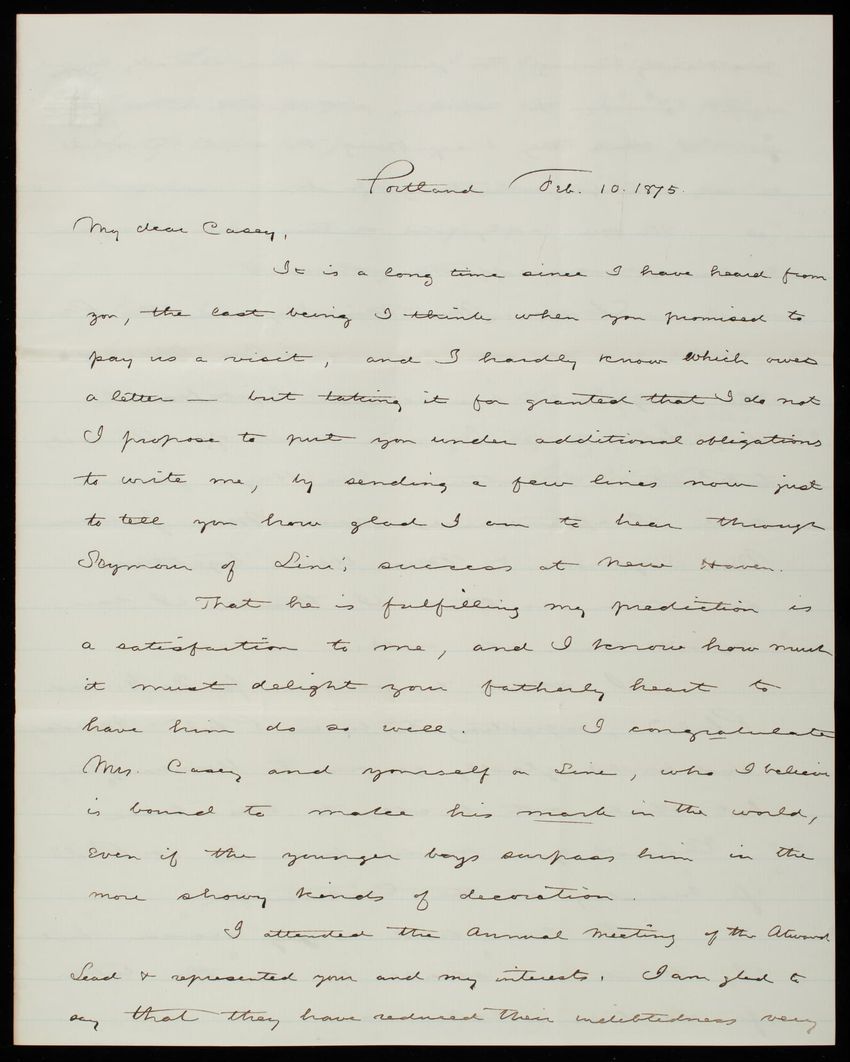 Portland Feb. 10. 1875.
My dear Casey,
It is a long time since I have heard from
you, the last being I think when you promised to
pay us a visit, and I hardly know which owes
a letter — but taking it for granted that I do not
I propose to put you under additional obligations
to write me, by sending a few lines now just
to tell you how glad I am to hear through
Seymour of Line's success at New Haven.
That he is fulfilling my prediction is
a satisfaction to me, and I know how much
it must delight your fatherly heart to
have him do so well. I congratulate
Mrs. Casey and yourself on Line, who I believe
is bound to make his mark in the world,
even if the younger boys surpass him in the
more showy kinds of decoration.
I attended the Annual Meeting of the Atwood
Lead & represented your and my interests. I am glad to
say that they have reduced their indebtedness very